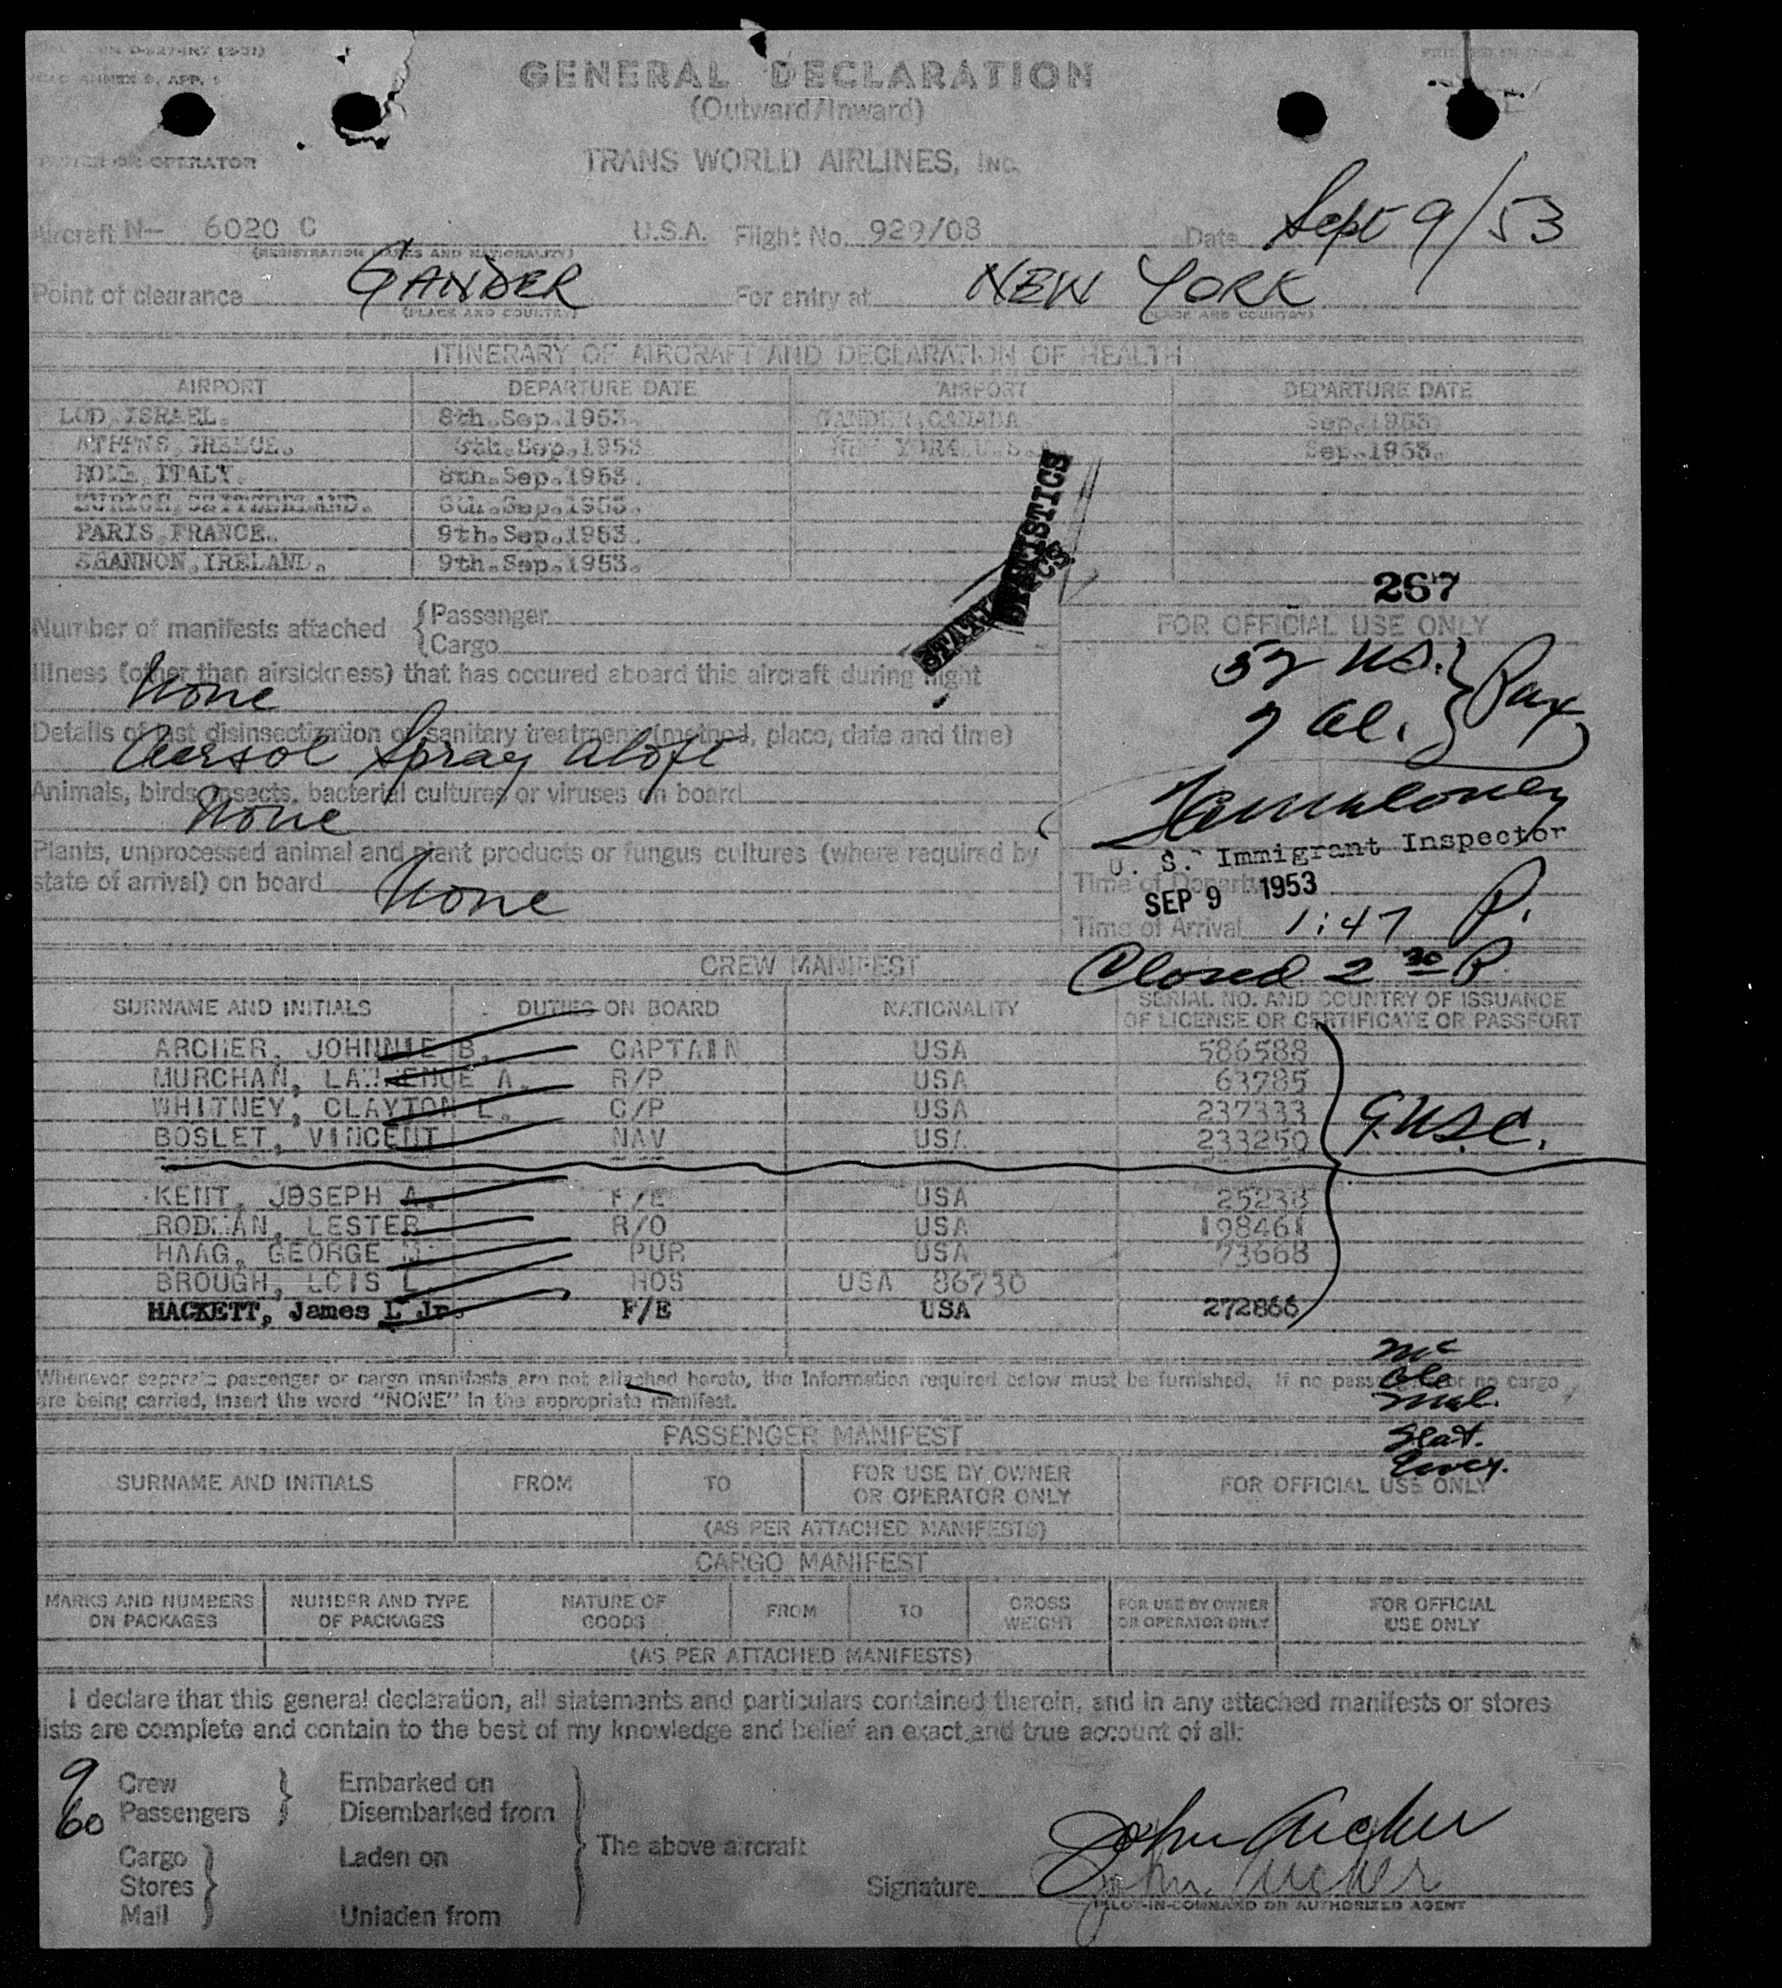 GENERAL DECLARATION
(Outward/Inward)
OR OPERATOR TRANS WORLD AIRLINES, INC.
Aircraft N- 6020 C U.S.A. Flight No. 929/08 Date Sept 9/53
(REGISTRATION MARKS AND NATIONALITY)
Point of clearance GANDER For entry at NEW YORK
(PLACE AND COUNTRY) (PLACE AND COUNTRY)
ITINERARY OF AIRCRAFT AND DECLARATION OF HEALTH
AIRPORT DEPARTURE DATE AIRPORT DEPARTURE DATE
LOD, ISRAEL. 8th.Sep.1953. GANDER, CANADA Sep.1953
ATHENS, GREECE. 8th.Sep.1953 NEW YORK, U.S.A. Sep.1953.
ROME, ITALY. 8th.Sep.1953.
ZURICH, SWITZERLAND. 8th.Sep.1953.
PARIS, FRANCE. 9th.Sep.1953.
SHANNON, IRELAND. 9th.Sep.1953.
STATISTICS
267
Number of manifests attached {Passenger
{Cargo
FOR OFFICIAL USE ONLY
Illness (other than airsickness) that has occured aboard this aircraft during flight
None
52 US. } Pax
7 Al.
Details of last disinsectization or sanitary treatment (method, place, date and time)
Aersol Spray aloft
Animals, birds, insects, bacterial cultures or viruses on board
None
U. S. Immigrant Inspector
Plants, unprocessed animal and plant products or fungus cultures (where required by
state of arrival) on board None
Time of Departure
SEP 9 1953
Time of Arrival 1:47 P.
Closed 2 30 P.
CREW MANIFEST
SURNAME AND INITIALS DUTIES ON BOARD NATIONALITY SERIAL NO. AND COUNTRY OF ISSUANCE
OF LICENSE OR CERTIFICATE OR PASSPORT
ARCHER, JOHNNIE B. CAPTAIN USA 586588
MURCHAN, LAWRENCE A. R/P USA 63785
WHITNEY, CLAYTON L. C/P USA 237333
BOSLET, VINCENT NAV USA 233250
KENT, JOSEPH A. F/E USA 25238
RODMAN, LESTER R/O USA 198461
HAAG, GEORGE PUR USA 73668
BROUGH, LOIS L HOS USA 86730
HACKETT, James L Jr. F/E USA 272866
Whenever separate passenger or cargo manifests are not attached hereto, the information required below must be furnished. If no passengers or no cargo
are being carried, insert the word "NONE" in the appropriate manifest.
PASSENGER MANIFEST
SURNAME AND INITIALS FROM TO FOR USE BY OWNER
OR OPERATOR ONLY FOR OFFICIAL USE ONLY
(AS PER ATTACHED MANIFESTS)
CARGO MANIFEST
MARKS AND NUMBERS
ON PACKAGES NUMBER AND TYPE
OF PACKAGES NATURE OF
GOODS FROM TO GROSS
WEIGHT FOR USE BY OWNER
OR OPERATOR ONLY FOR OFFICIAL
USE ONLY
(AS PER ATTACHED MANIFESTS)
I declare that this general declaration, all statements and particulars contained therein, and in any attached manifests or stores
lists are complete and contain to the best of my knowledge and belief an exact and true account of all:
9 Crew Embarked on
60 Passengers Disembarked from
The above aircraft
Cargo Laden on
Stores
Mail Unladen from
Signature John Archer
John Archer
PILOT-IN-COMMAND OR AUTHORIZED AGENT